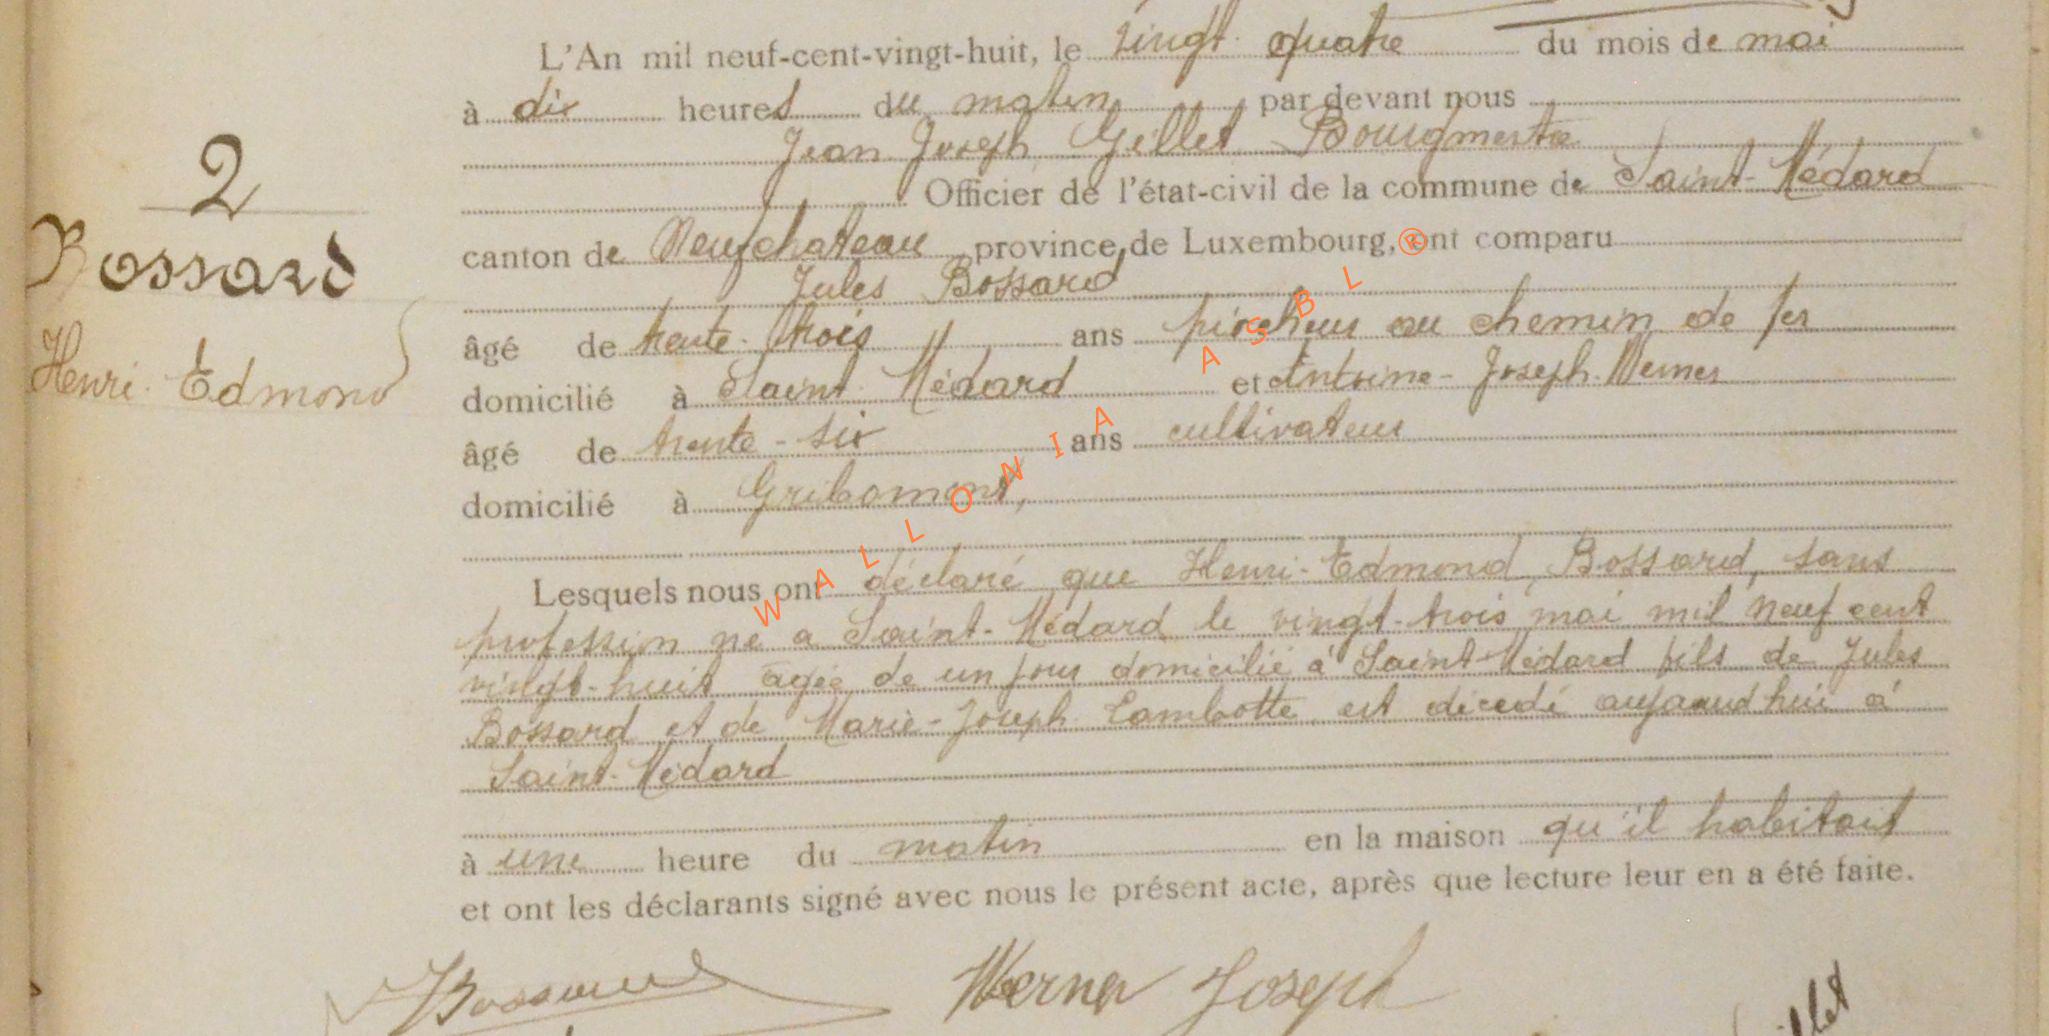 L'An mil neuf-cent-vingt-huit, le vingt quatre du mois de mai
à dix heures du matin par devant nous
Jean Joseph Gillet Bourgmestre
Officier de l'état-civil de la commune de Saint-Médard
canton de Neufchateau province de Luxembourg, ont comparu
Jules Bossard
âgé de trente-trois ans piocheur au chemin de fer
domicilié à Saint-Médard et Antoine-Joseph Werner
âgé de trente-six ans cultivateur
domicilié à Gribomont,
Lesquels nous ont déclaré que Henri-Edmond Bossard, sans
profession né a Saint-Médard le vingt-trois mai mil neuf cent
vingt-huit agée de un jour domicilié à Saint-Médard fils de Jules
Bossard et de Marie-Joseph Lambotte est décedé aujourd'hui à
Saint-Médard
à une heure du matin en la maison qu'il habitait
et ont les déclarants signé avec nous le présent acte, après que lecture leur en a été faite.
2
Bossard
Henri-Edmond
Bossard Werner Joseph
WALLONIA ASBL®